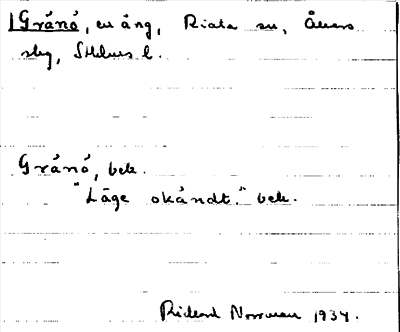 Grånö, en äng, Riala sn, Åkers
skg, Sthlms l.
Grånö, bete.
"Läge okändt." bete.
Rickard Norrman 1934.